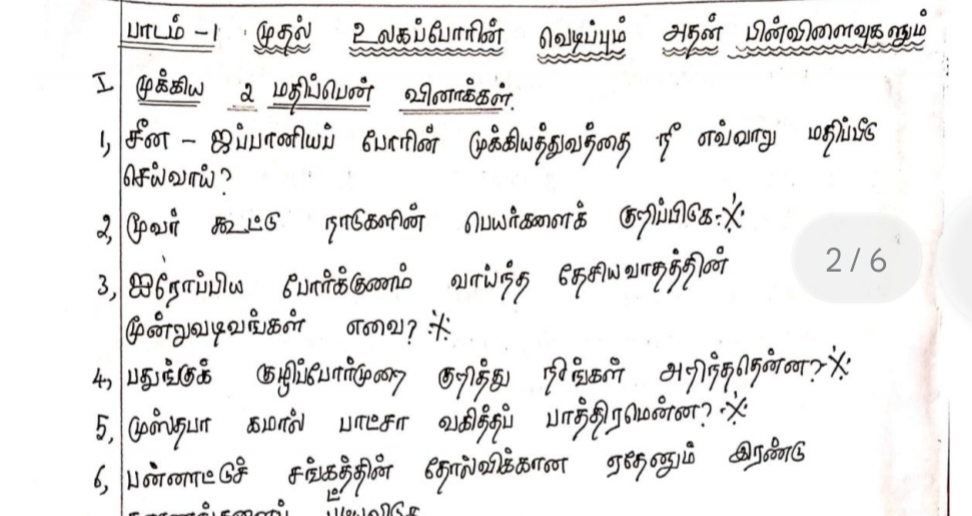 பாடம் - 1 முதல் உலகப்போரின் வெடிப்பும் அதன் பின்விளைவுகளும்
I முக்கிய 2 மதிப்பெண் வினாக்கள்.
1, சீன - ஜப்பானியப் போரின் முக்கியத்துவத்தை நீ எவ்வாறு மதிப்பீடு
செய்வாய்?
2, மூவர் கூட்டு நாடுகளின் பெயர்களைக் குறிப்பிடுக.※
2 / 6
3, ஐரோப்பிய போர்க்குணம் வாய்ந்த தேசியவாதத்தின்
மூன்றுவடிவங்கள் எவை? ※
4, பதுங்குக் குழிப்போர்முறை குறித்து நீங்கள் அறிந்ததென்ன?※
5, முஸ்தபா கமால் பாட்சா வகித்தப் பாத்திரமென்ன?※
6, பன்னாட்டுச் சங்கத்தின் தோல்விக்கான ஏதேனும் இரண்டு